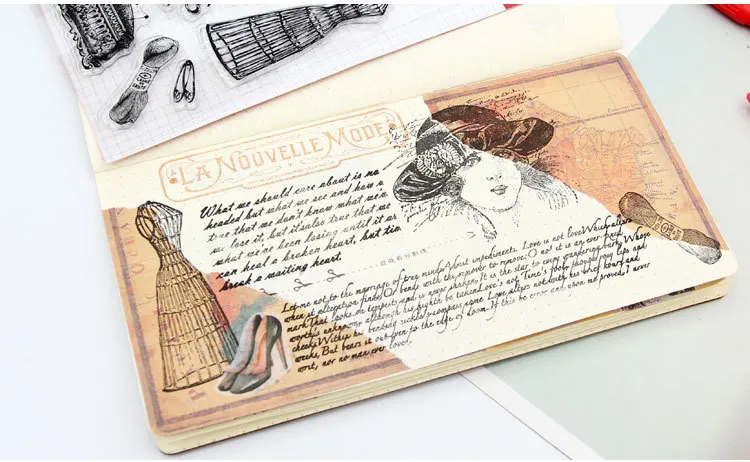 LA NOUVELLE MODE
What we should care about is no
headed but what we see and how
true that we don't know what we'
we lose it, but itsalso true that we
what we've been losing until it ar
can heal a broken heart, but tim
break a waiting heart.
Let me not to the marriage of true minds About impediments. Love is not love Which alters
when it alteration finds, Or bends with the remover to remove: O no! it is an ever fixed
mark That looks on tempests and is never shaken; It is the star to every wandering bark, Whose
worth's unknown although his height be taken Love's not Time's fool, though rosy lips and
cheeks Within his bending sickle's compass come. Love alters not with his brief hours and
weeks, But bears it out even to the edge of doom. If this be error and upon me proved, I never
writ, nor no man ever loved.